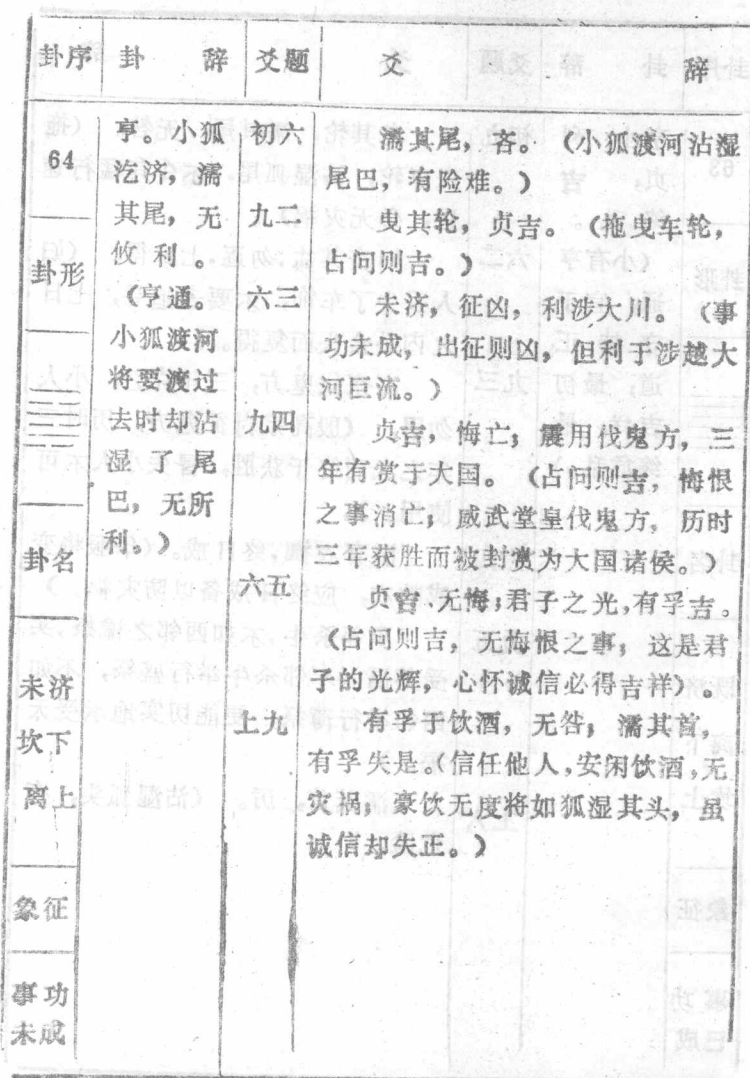 卦序 卦 辞 爻题 爻 辞
64
卦形
卦名
未济
坎下
离上
象征
事功
未成
亨。小狐
汔济，濡
其尾，无
攸利。
（亨通。
小狐渡河
将要渡过
去时却沾
湿了尾
巴，无所
利。）
初六
濡其尾，吝。（小狐渡河沾湿
尾巴，有险难。）
九二
曳其轮，贞吉。（拖曳车轮，
占问则吉。）
六三
未济，征凶，利涉大川。（事
功未成，出征则凶，但利于涉越大
河巨流。）
九四
贞吉，悔亡；震用伐鬼方，三
年有赏于大国。（占问则吉，悔恨
之事消亡；威武堂皇伐鬼方，历时
三年获胜而被封赏为大国诸侯。）
六五
贞吉、无悔；君子之光，有孚吉。
（占问则吉，无悔恨之事；这是君
子的光辉，心怀诚信必得吉祥）。
上九
有孚于饮酒，无咎；濡其首，
有孚失是。（信任他人，安闲饮酒，无
灾祸，豪饮无度将如狐湿其头，虽
诚信却失正。）